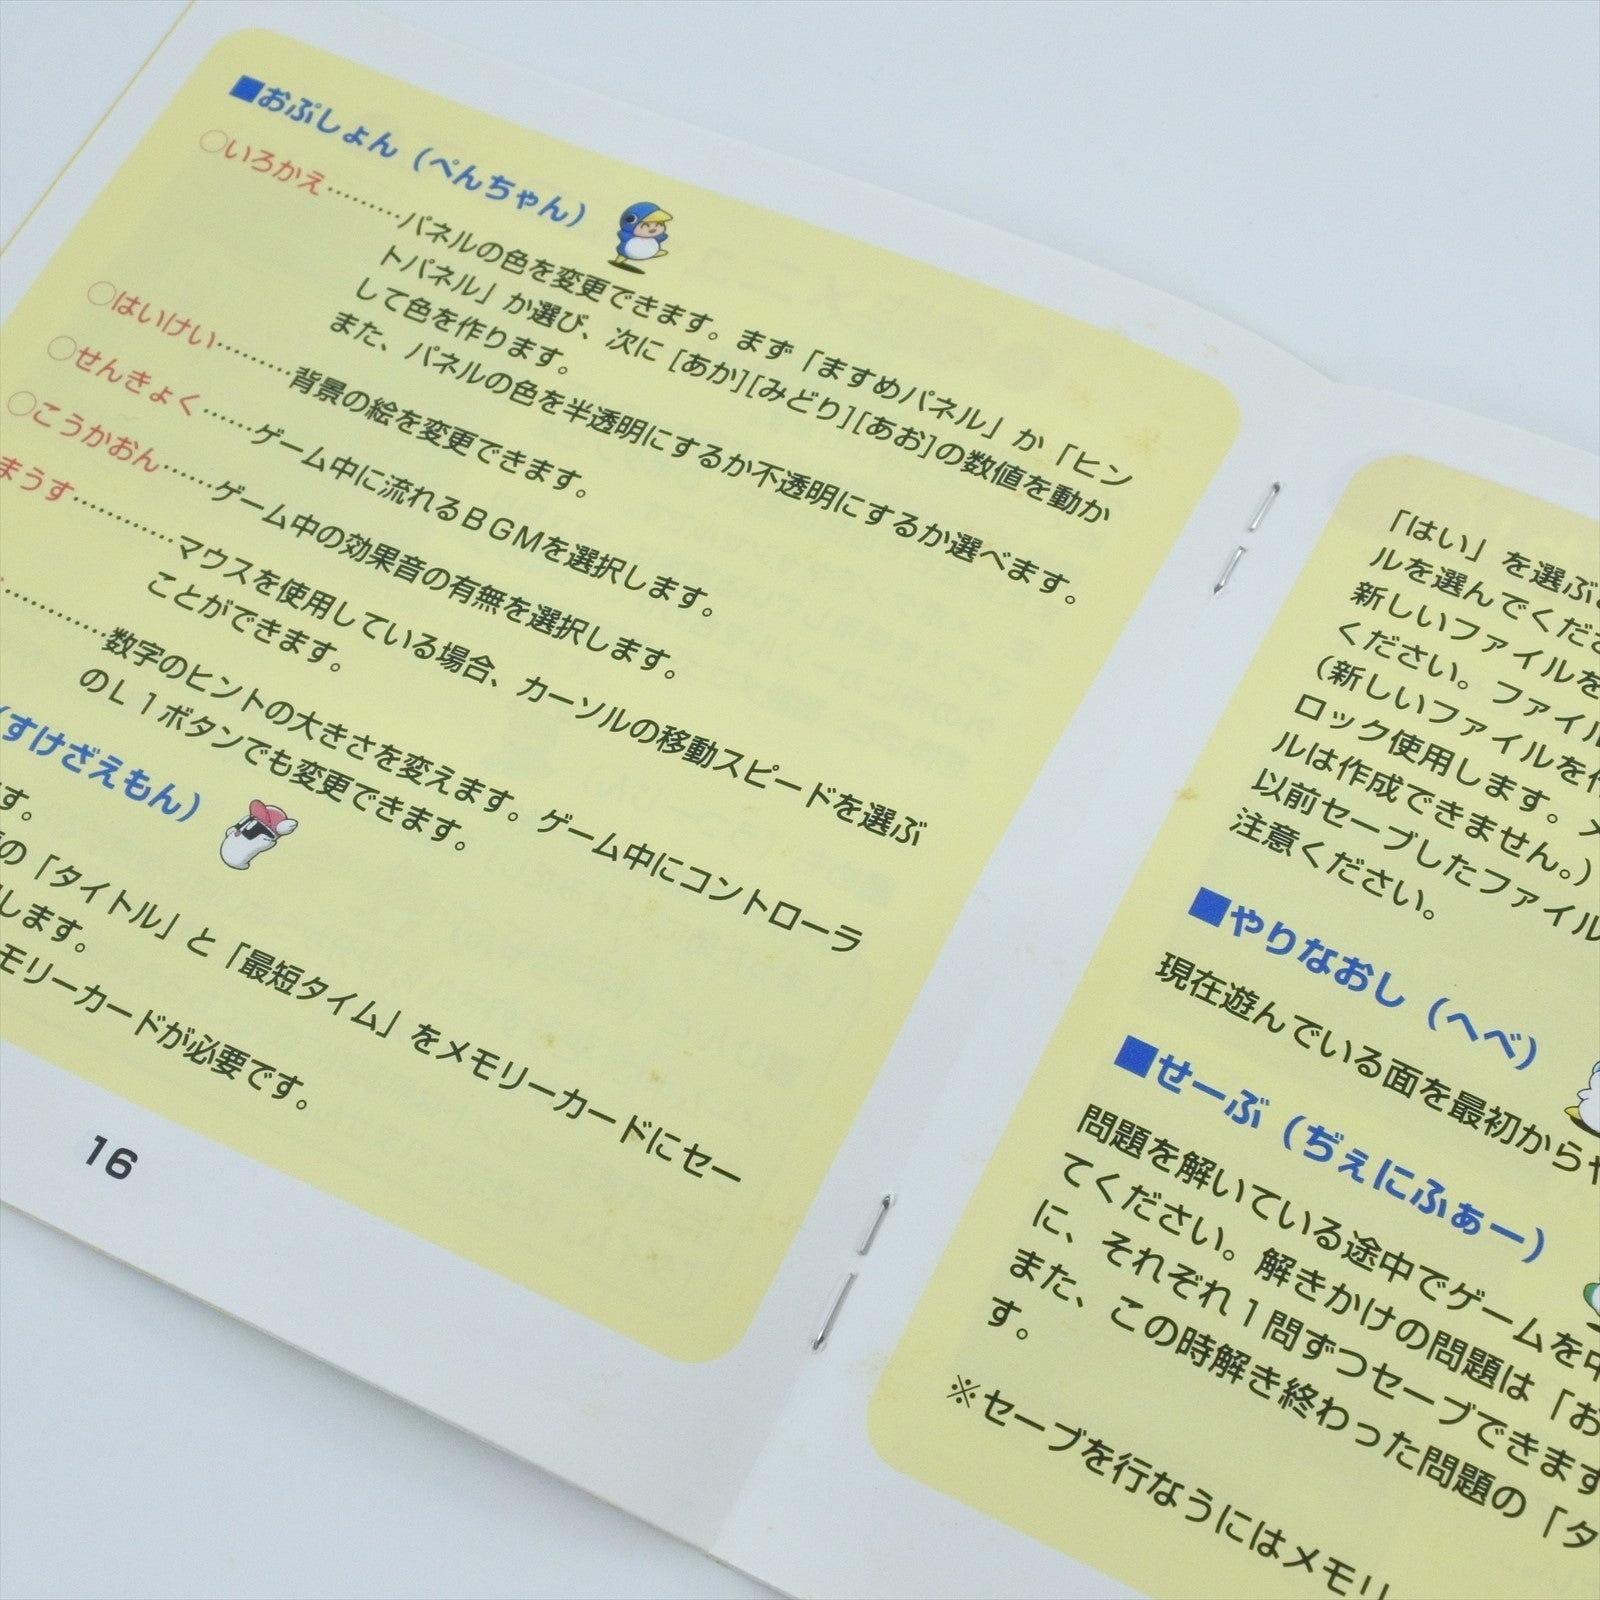 ■おぷしょん(ぺんちゃん)
○いろかえ………パネルの色を変更できます。まず「ますめパネル」か「ヒン
トパネル」か選び、次に[あか][みどり][あお]の数値を動か
して色を作ります。
また、パネルの色を半透明にするか不透明にするか選べます。
○はいけい………背景の絵を変更できます。
○せんきょく……ゲーム中に流れるBGMを選択します。
○こうかおん……ゲーム中の効果音の有無を選択します。
まうす…………マウスを使用している場合、カーソルの移動スピードを選ぶ
ことができます。
…………数字のヒントの大きさを変えます。ゲーム中にコントローラ
のL1ボタンでも変更できます。
(すけざえもん)
す。
の「タイトル」と「最短タイム」をメモリーカードにセー
します。
モリーカードが必要です。
16
「はい」を選ぶ
ルを選んでくださ
新しいファイルを
ください。ファイル
(新しいファイルを作
ロック使用します。メ
ルは作成できません。)
以前セーブしたファイル
注意ください。
■やりなおし(へべ)
現在遊んでいる面を最初からや
■せーぶ(ぢぇにふぁー)
問題を解いている途中でゲームを中
てください。解きかけの問題は「お
に、それぞれ1問ずつセーブできます
また、この時解き終わった問題の「タ
す。
※セーブを行なうにはメモリ